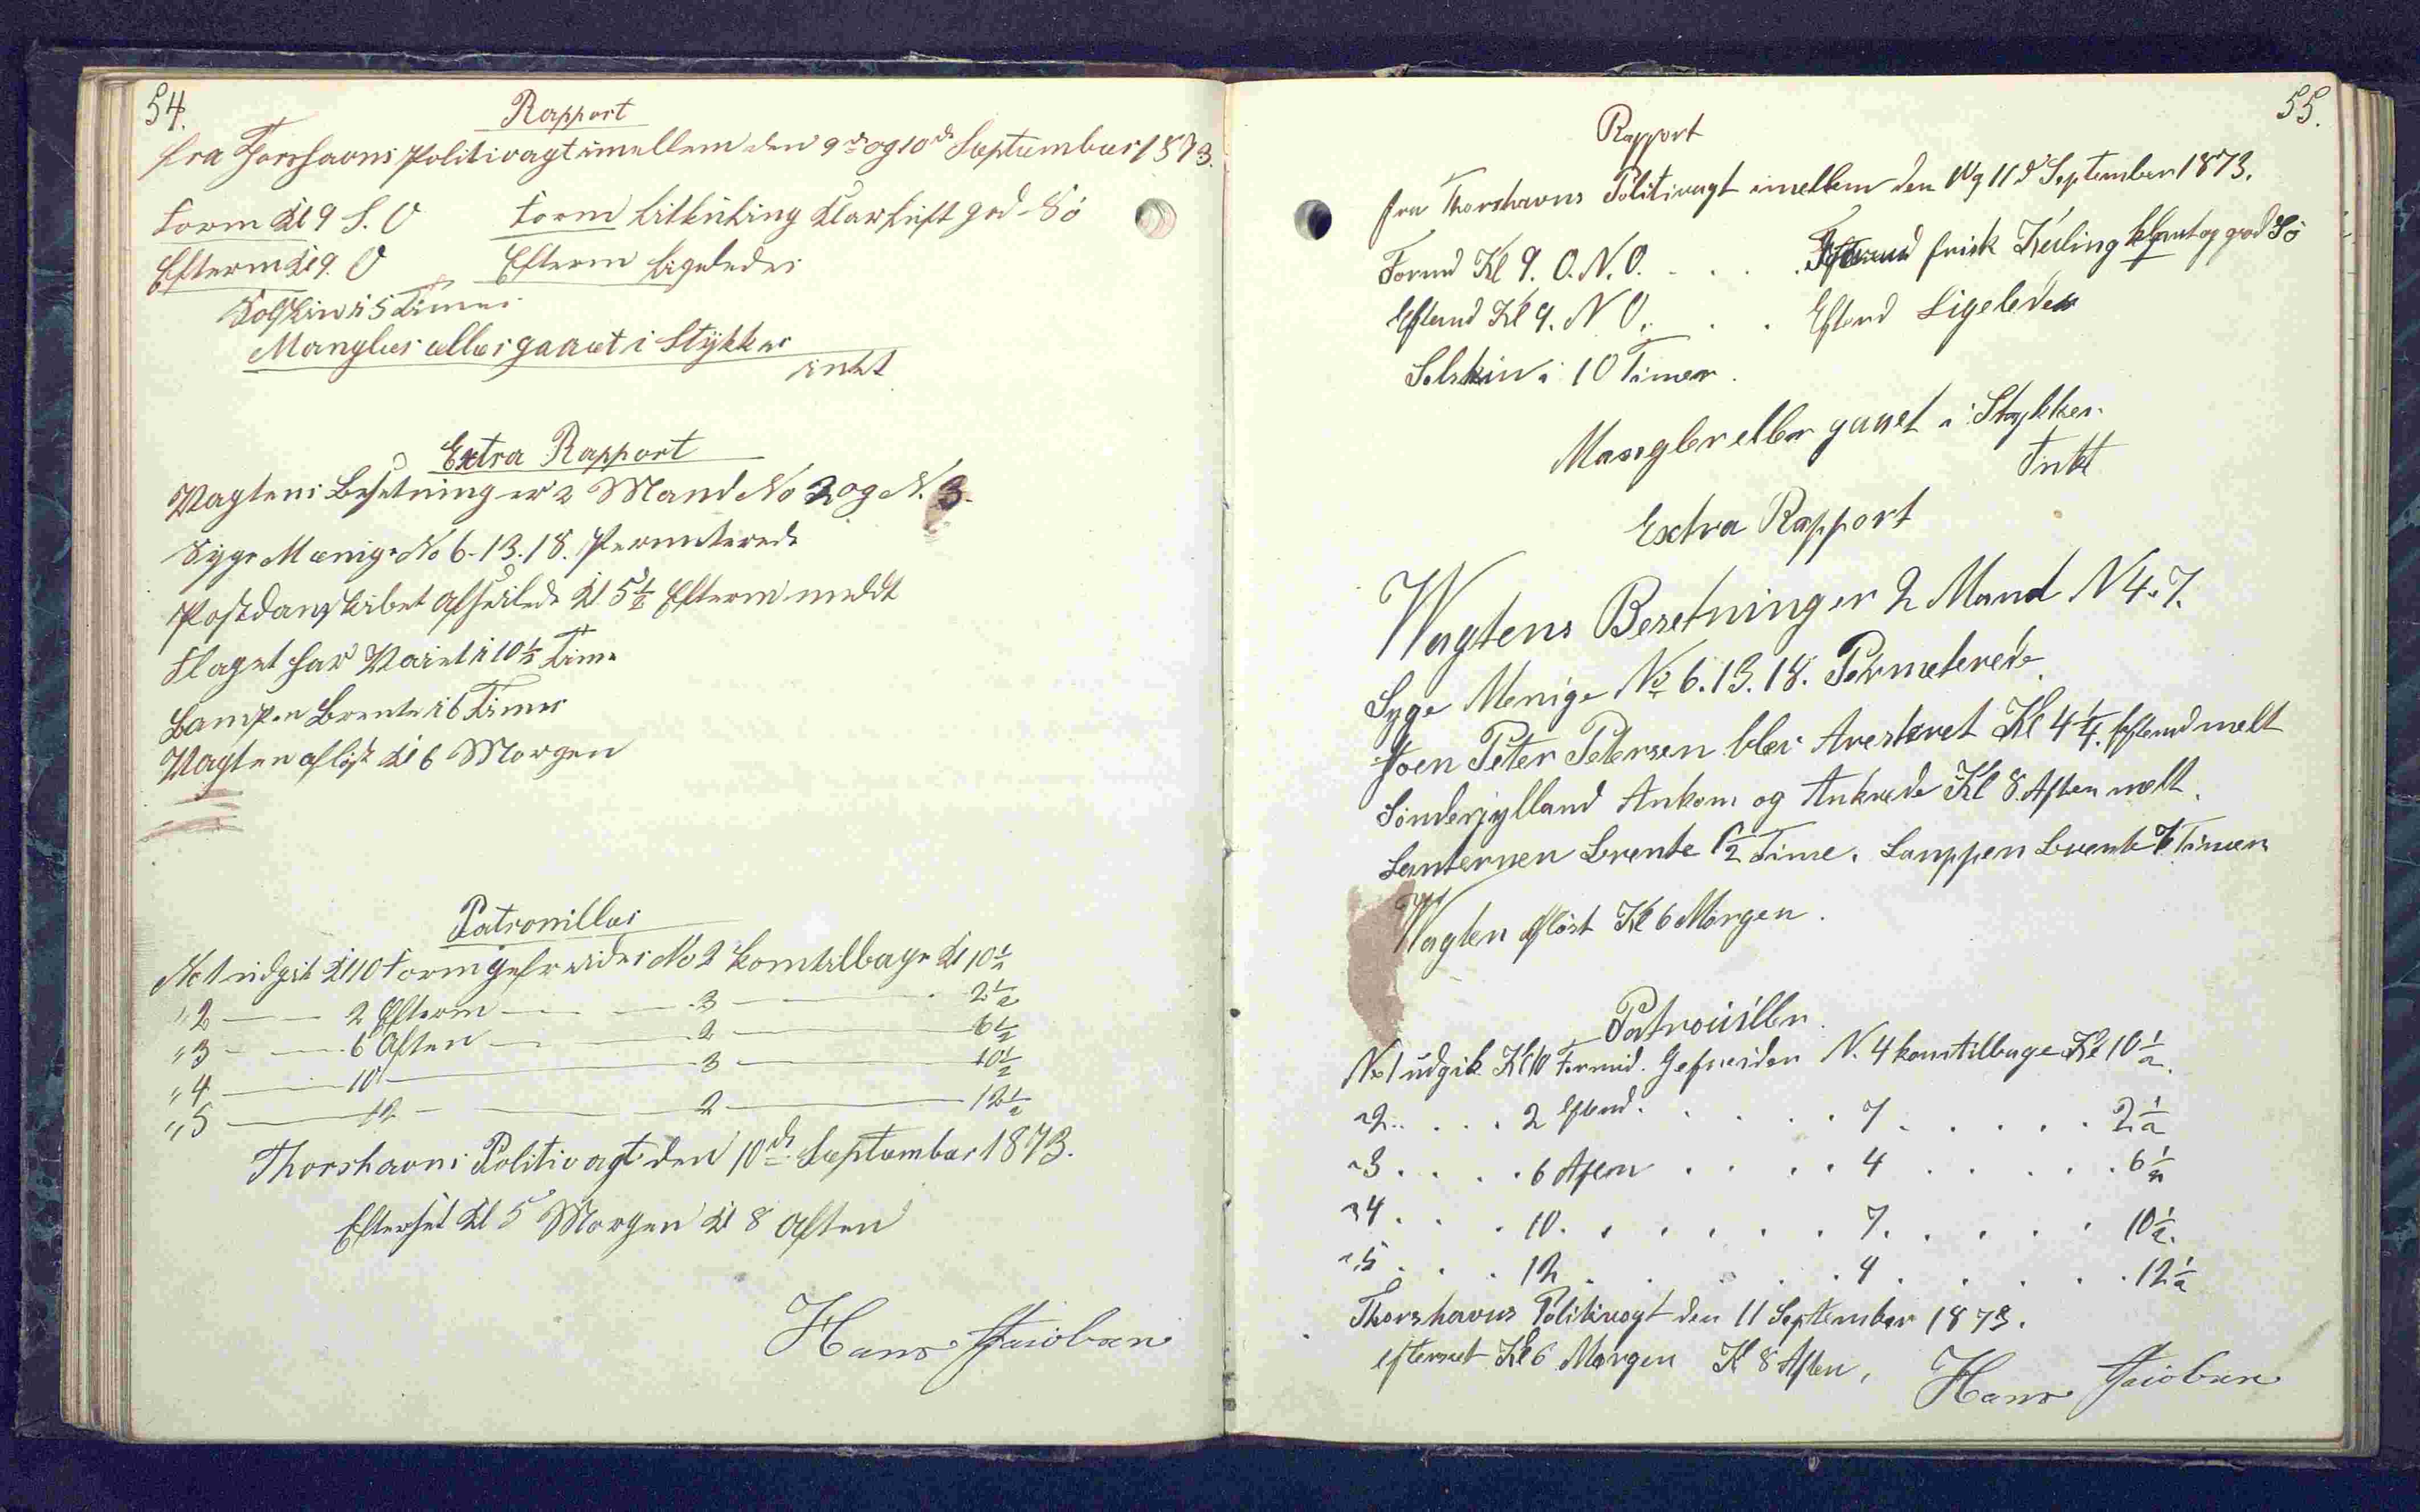 54.
Rapport
fra Thorshavns Politivagt imellem den 9de og 10de September 1873.
Form Kl 9 S. O Form let Kuling Klar Luft god Sö
Efterm Kl 9. O Efterm ligeledes
Solskin i 5 Timer
Mangler eller gaaet i Stykker
intet
Extra Rapport
Vagtens Besetning er 2 Mand No 2 og N. 3.
Syge Menige No 6-13.18. Permeterede
Postdampskibet afseilede Kl 5 1/2 Efterm meldt
Flaget har Vaiet i 10 1/2 Time
Lampen Brente i 6 Timer
Vagten aflöst Kl 6 Morgen
Patrouiller
No 1 udgik Kl 10 Form gefreider No 2 kom tilbage Kl 10 1/2
" 2 — — 2 Efterm — — 3 — — 2 1/2
" 3 — — 6 Aften — — 2 — — 6 1/2
" 4 — — 10 — — 3 — — 10 1/2
" 5 — — 12 — — 2 — — 12 1/2
Thorshavns Politivagt den 10de September 1873.
Efterset Kl 5 Morgen Kl 8 Aften
Hans Jacobsen
55.
Rapport
fra Thorshavns Politivagt imellem den 10 og 11 d September 1873.
Formd Kl 9. O.N.O. . . . frisk Kuling klart og god Sö
Eftemd Kl 9. N O. . . . Eftemd Ligeledes
Solskin i 10 Timer.
Mangler eller gaaet i Stykker.
Intet
Extra Rapport
Wagtens Besetning er 2 Mand N 4. 7.
Syge Menige No 6. 13. 18. Permeterede
Joen Peter Petersen blev Aresteret Kl 4 1/4. Eftemd melt
Sönderjylland Ankom og Ankrede Kl 8. Aften melt.
Lanternen Brente 1/2 Time. Lamppen Brente 7 Timer
Wagten aflöst Kl 6 Morgen.
Patrouiller.
No 1 udgik Kl 10 Formd. Gefreider N. 4 kom tilbage Kl 10 1/2.
" 2 . . . . 2 Eftemd. . . . . 7 . . . . . 2 1/2
" 3 . . . . 6 Aften . . . . 4 . . . . . 6 1/2
" 4 . . . . 10. . . . . . 7. . . . . 10 1/2.
" 5 . . . . 12 . . . . . 4 . . . . . 12 1/2
Thorshavns Politivagt den 11 September 1873.
efterset Kl 6 Morgen Kl 8 Aften,
Hans Jacobsen